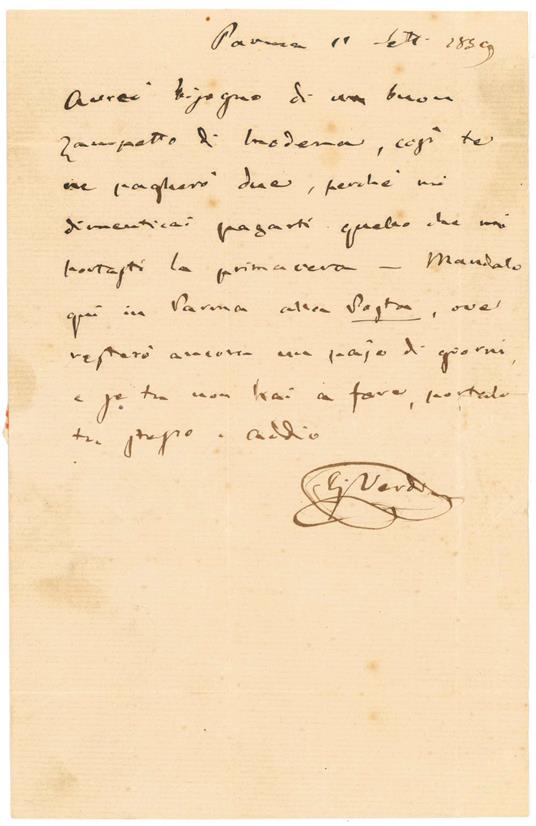 Parma 11 Sett. 1859
Avrei bisogno di un buon
zampetto di Modena, così te
ne pagherò due, perchè mi
dimenticai pagarti quello che mi
portasti la primavera — Mandalo
qui in Parma alla Posta, ove
resterò ancora un pajo di giorni,
e se tu non hai a fare, portalo
tu stesso. addio
G. Verdi